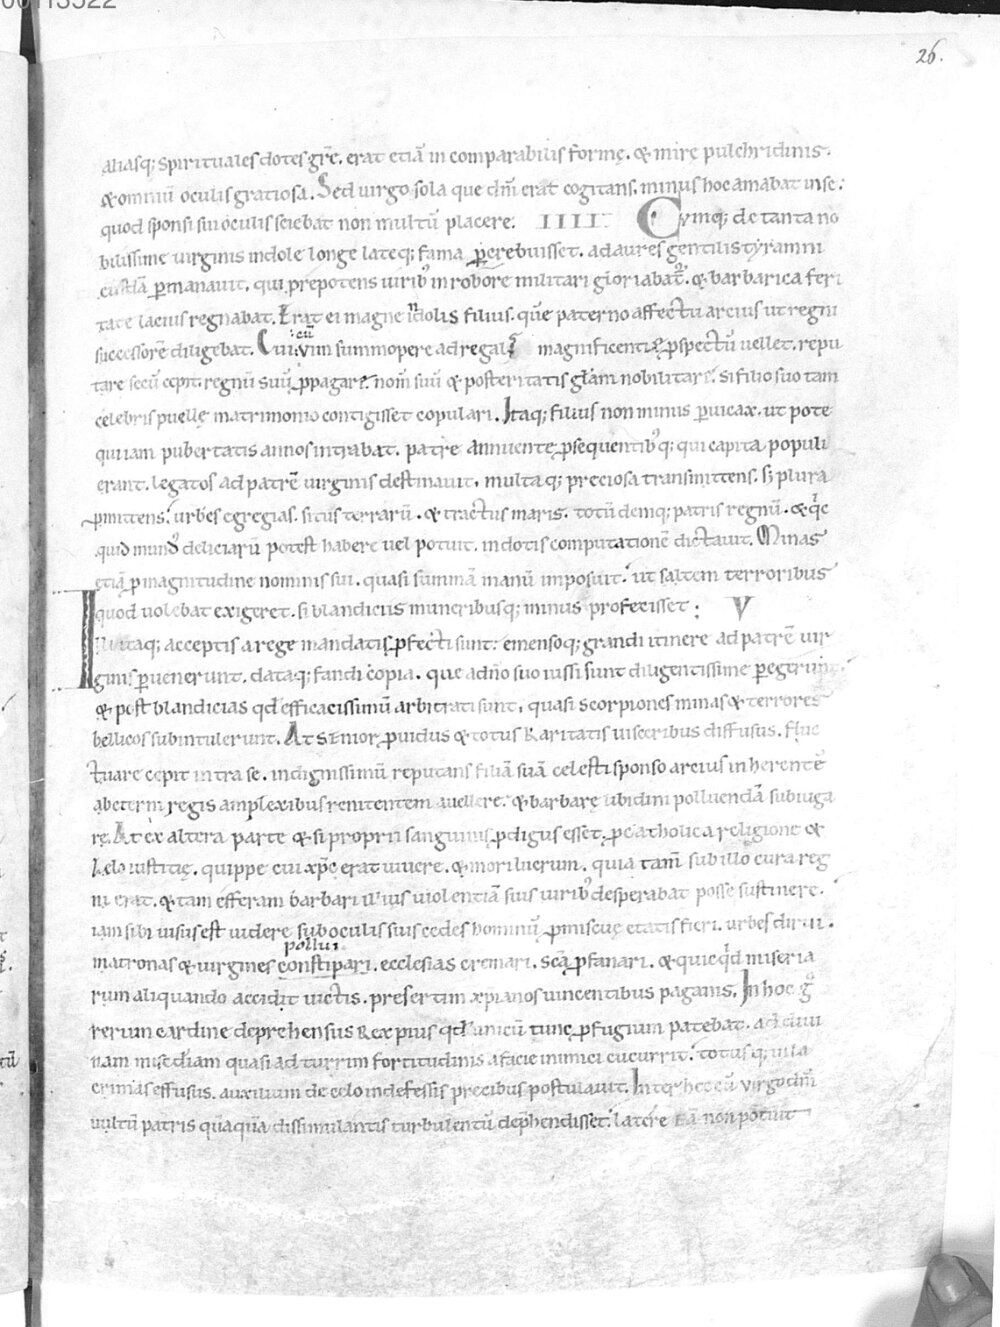 00113522
26.
aliasq; spirituales dotes grȩ. erat etiā in comparabilis formę. & mirę pulchridinis.
& omniū oculis gratiosa. Sed virgo sola que dm̄ erat cogitans. minus hoc amabat in se:
quod sponsi sui oculis sciebat non multū placere. IIII. Cvmq; de tanta no
bilissime virginis indole longe lateq; fama ꝑcrebuisset. ad aures gentilis tyranni
cuiusdā ꝑmanauit. qui prepotens uirib; in robore militari gloriabat᷑. & barbarica feri
tate lacius regnabat. Erat ei magne indolis filius. quē paterno affectu arcius ut regni
successorē diligebat. Cui cū vim summopere ad regal magnificentię ꝓspectū uellet. repu
tare secū cepit. regnū suū ꝓpagari. nom̄ suū & posteritatis glām nobilitari. Si filio suo tam
celebris puellę matrimonio contigisset copulari. Itaq; filius non minus ꝑuicax. ut pote
qui iam pubertatis annos intrabat. patre annuente ꝓsequentib; q; qui capita populi
erant. legatos ad patrē virginis destinauit. multaq; preciosa transmittens. s; plura
ꝓmittens. urbes egregias. situs terrarū. & tractus maris. totū deniq; patris regnū. & qͥc
quid mund᷒ deliciarū potest habere uel potuit. in dotis computationē dictauit. Minas
etiā ꝓ magnitudine nominis sui. quasi summā manū imposuit. ut saltem terroribus
quod uolebat exigeret. si blandiciis muneribusq; minus profecisset: V
Illi itaq; acceptis a rege mandatis ꝓfecti sunt. emensoq; grandi itinere ad patrē vir
ginis ꝑuenerunt. dataq; fandi copia. que a dn̄o suo iussi sunt diligentissime ꝑegerunt.
& post blandicias qd̄ efficacissimū arbitrati sunt, quasi scorpiones minas & terrores
bellicos subintulerunt. At senior ꝓuidus & totus karitatis uisceribus diffusus. fluc
tuare cepit intra se. indignissimū reputans filiā suā celesti sponso arcius inherentē
ab eterni regis amplexibus renitentem auellere. & barbarę libidini polluendā subiuga
re. At ex altera parte & si proprii sanguinis ꝓdigus esset. ꝓ catholica religione &
zelo iustitię. quippe cui xp̄c erat uiuere. & mori lucrum. quia tam̄ sub illo cura reg
ni erat. & tam efferam barbari illius uiolentiā suis uirib; desperabat posse sustinere.
iam sibi uisus est uidere sub oculis suis cedes hominū ꝓmiscuę etatis fieri. urbes dirui.
pollui
matronas & uirgines constipari. ecclesias cremari. sc̄a ꝓfanari. & quicqͥd miseria
rum aliquando accidit uictis. presertim xp̄ianos uincentibus paganis. In hoc gͦ
rerum cardine deprehensus Rex pius qd̄ unicū tunc ꝑfugium patebat. ad diui
nam mis̄cdiam quasi ad turrim fortitudinis a facie inimici cucurrit. totusq; in la
crimas effusus. auxilium de celo indefessis precibus postulauit. Inter hec cū virgo dm̄
uultū patris quāquā dissimulantis turbulentū dep̄hendisset. latere eā non potuit